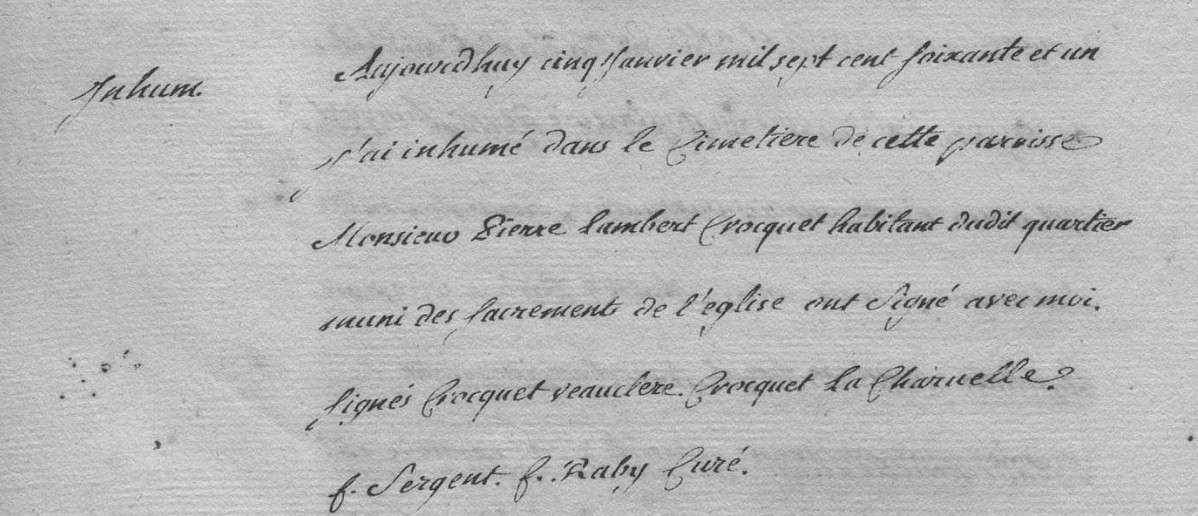 Inhum.
Aujourdhuy cinq Janvier mil sept cent soixante et un
j'ai inhumé dans le Cimetiere de cette paroisse
Monsieur Pierre Lambert Crocquet habitant dudit quartier
muni des sacrements de l'église ont Signé avec moi.
signés Crocquet veauclere. Crocquet la Charuelle.
f. Sergent. f. Raby Curé.